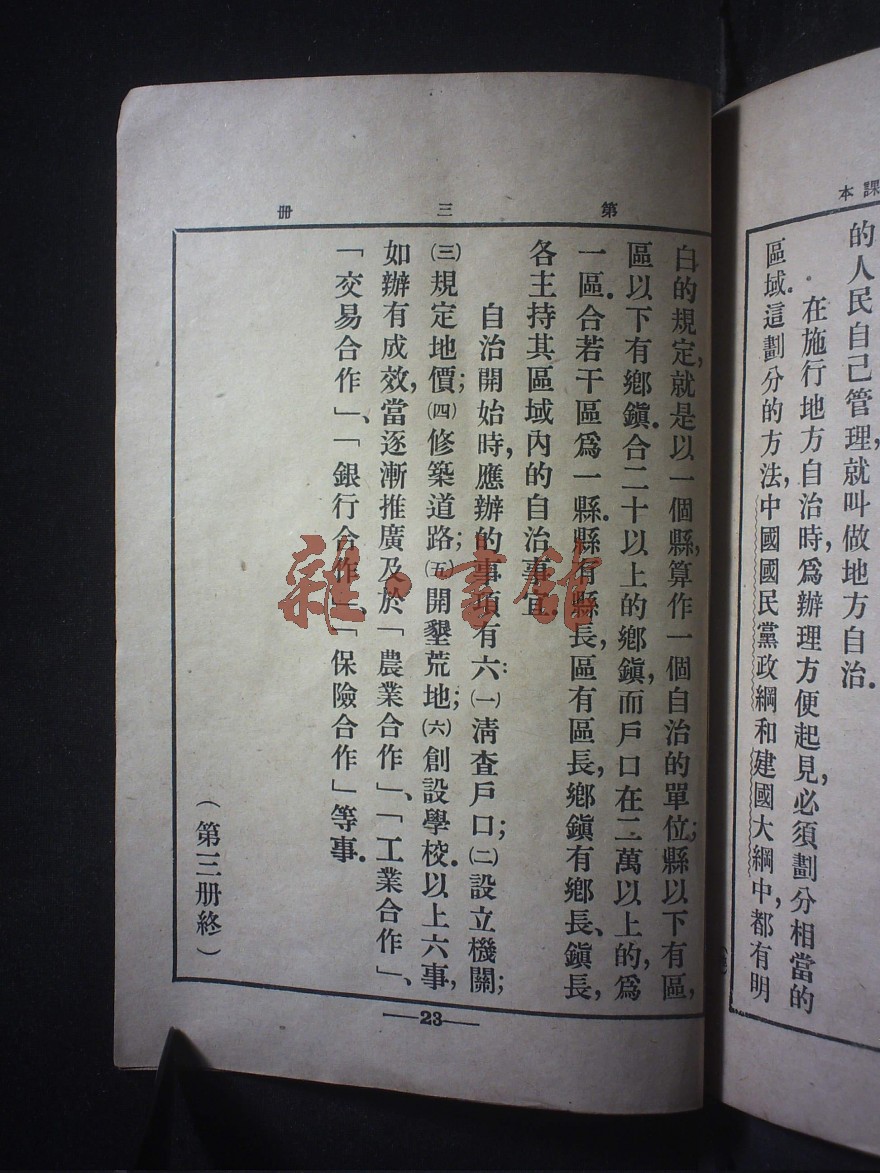 課本
的人民自己管理,就叫做地方自治.
在施行地方自治時,爲辦理方便起見,必須劃分相當的
區域.這劃分的方法,中國國民黨政綱和建國大綱中,都有明
第三册
白的規定,就是以一個縣,算作一個自治的單位;縣以下有區,
區以下有鄉鎭.合二十以上的鄉鎭,而戶口在二萬以上的,爲
一區.合若干區爲一縣.縣有縣長,區有區長,鄉鎭有鄉長、鎭長,
各主持其區域內的自治事宜.
自治開始時,應辦的事項有六:㈠淸查戶口;㈡設立機關;
㈢規定地價;㈣修築道路;㈤開墾荒地;㈥創設學校.以上六事,
如辦有成效,當逐漸推廣及於「農業合作」、「工業合作」、
「交易合作」、「銀行合作」、「保險合作」等事.
(第三册終)
23
雜·書館